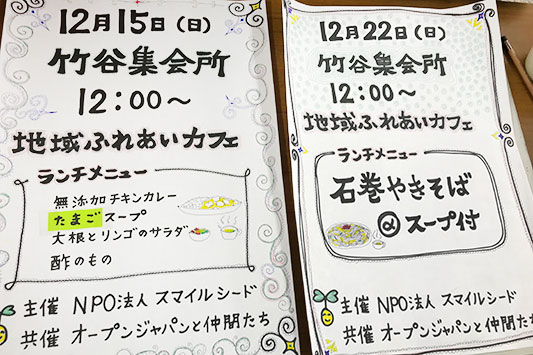 12月15日(日)
竹谷集会所
12:00〜
地域ふれあいカフェ
ランチメニュー
無添加チキンカレー
たまごスープ
大根とリンゴのサラダ
酢のもの
主催 NPO法人 スマイルシード
共催 オープンジャパンと仲間たち
12月22日(日)
竹谷集会所
12:00〜
地域ふれあいカフェ
ランチメニュー
石巻やきそば
@スープ付
主催 NPO法人 スマイルシード
共催 オープンジャパンと仲間た